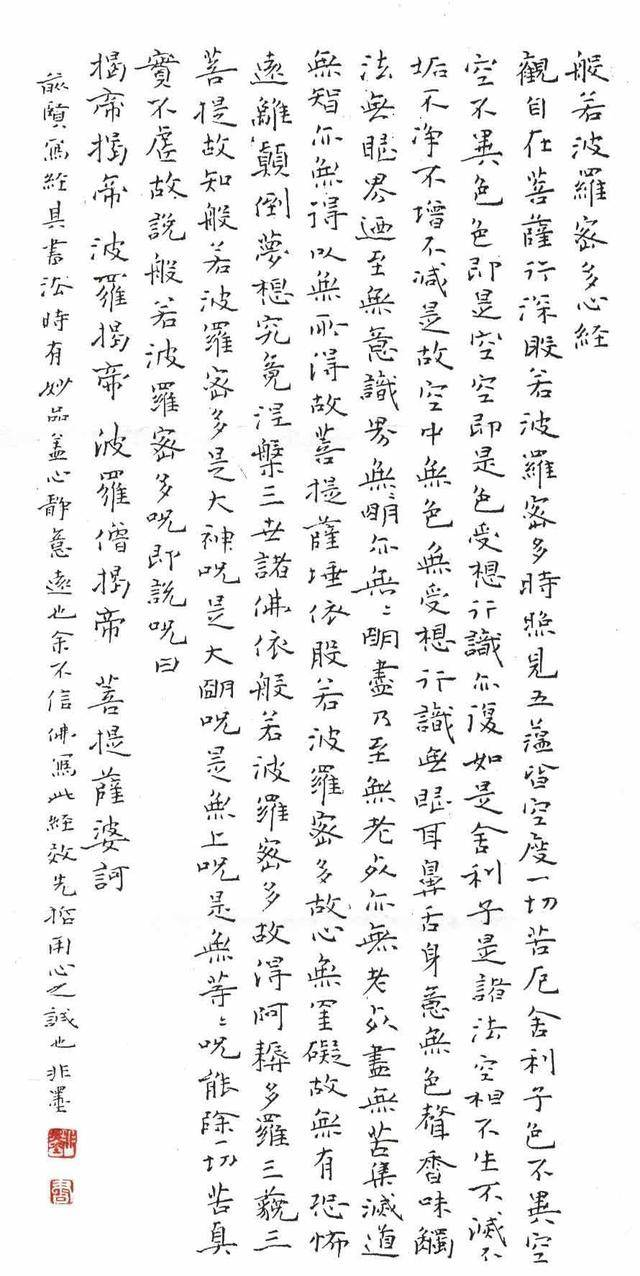 般若波羅密多心經
觀自在菩薩行深般若波羅密多時照見五蘊皆空度一切苦厄舍利子色不異空
空不異色色即是空空即是色受想行識亦復如是舍利子是諸法空相不生不滅不
垢不净不增不减是故空中無色無受想行識無眼耳鼻舌身意無色聲香味觸
法無眼界迺至無意識界無明亦無〻明盡乃至無老死亦無老死盡無苦集滅道
無智亦無得以無所得故菩提薩埵依般若波羅密多故心無罣礙故無有恐怖
遠離顛倒夢想究竟涅槃三世諸佛依般若波羅密多故得阿耨多羅三藐三
菩提故知般若波羅密多是大神呪是大明呪是無上呪是無等〻呪能除一切苦真
實不虛故說般若波羅密多呪即說呪曰
揭帝揭帝 波羅揭帝 波羅僧揭帝 菩提薩婆訶
前賢寫經具書法時有妙品蓋心靜意遠也余不信佛寫此經效先哲用心之誠也非墨